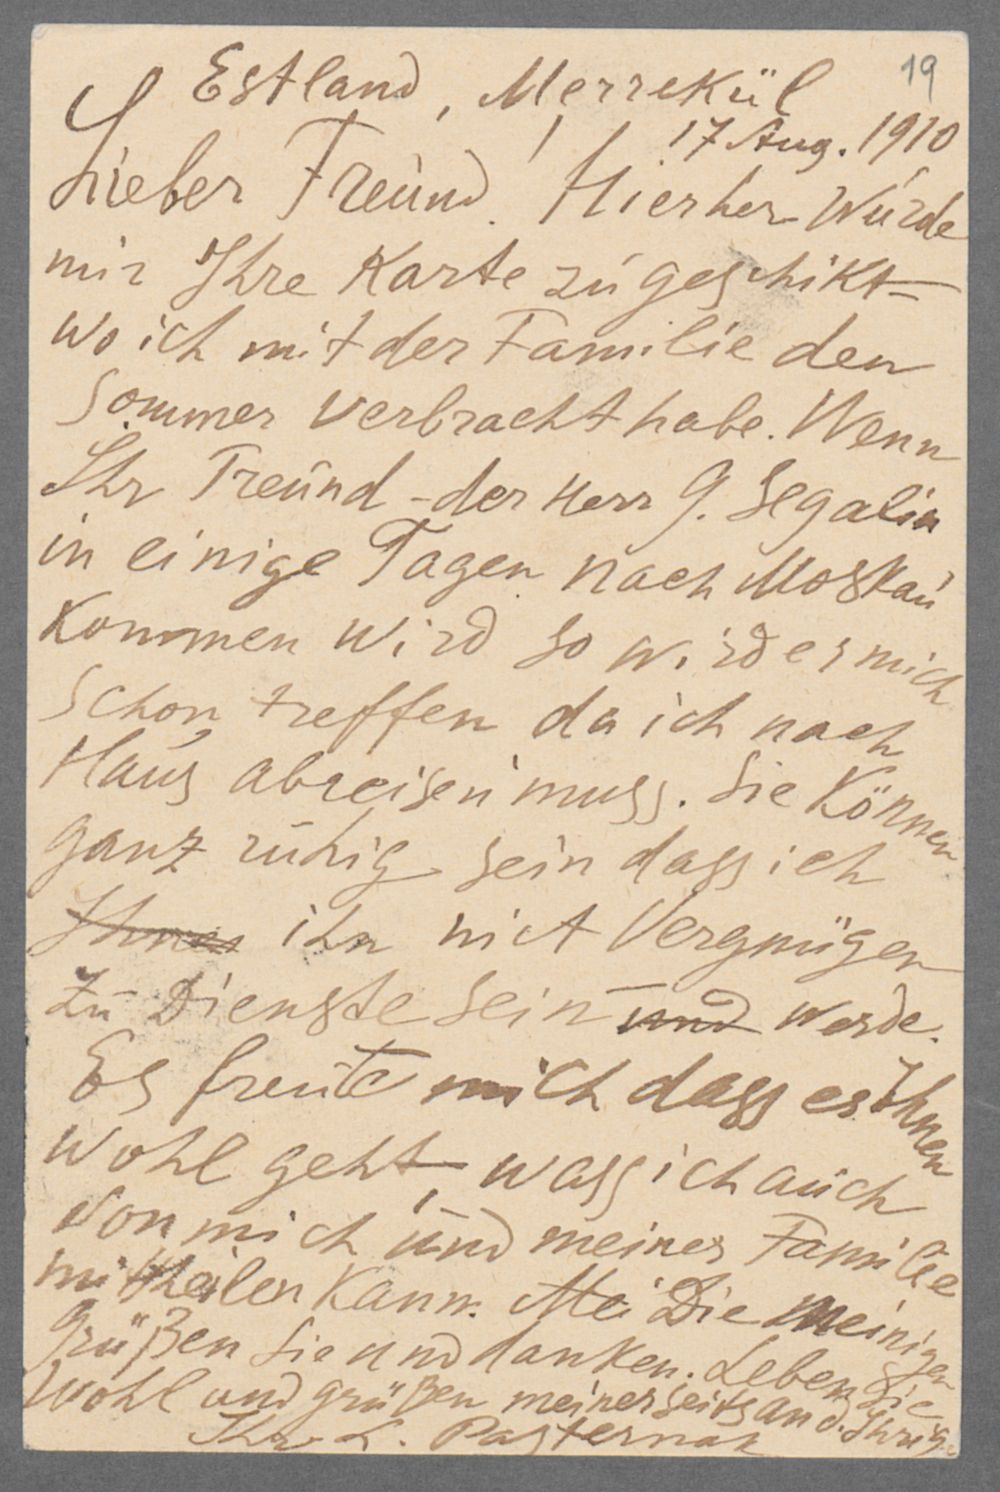 19
Estland, Merreküll
17 Aug. 1910
Lieber Freund! Hierher wurde
mir Ihre Karte zugeschikt
wo ich mit der Familie den
Sommer verbracht habe. Wenn
Ihr Freund - der Herr G. Segalin
in einige Tagen nach Moskau
kommen wird so wird er mich
schon treffen da ich nach
Haus abreisen muss. Sie können
ganz ruhig sein dass ich
Ihnen ihn mit Vergnügen
zu Dienste sein und werde.
Es freute mich dass es Ihnen
wohl geht, wass ich auch
von mich und meiner Familie
mittheilen kann. Mei Die Meinigen
grüßen Sie und danken. Leben Sie
wohl und grüßen meinerseits an d. Ihrige
Ihr L. Pasternak